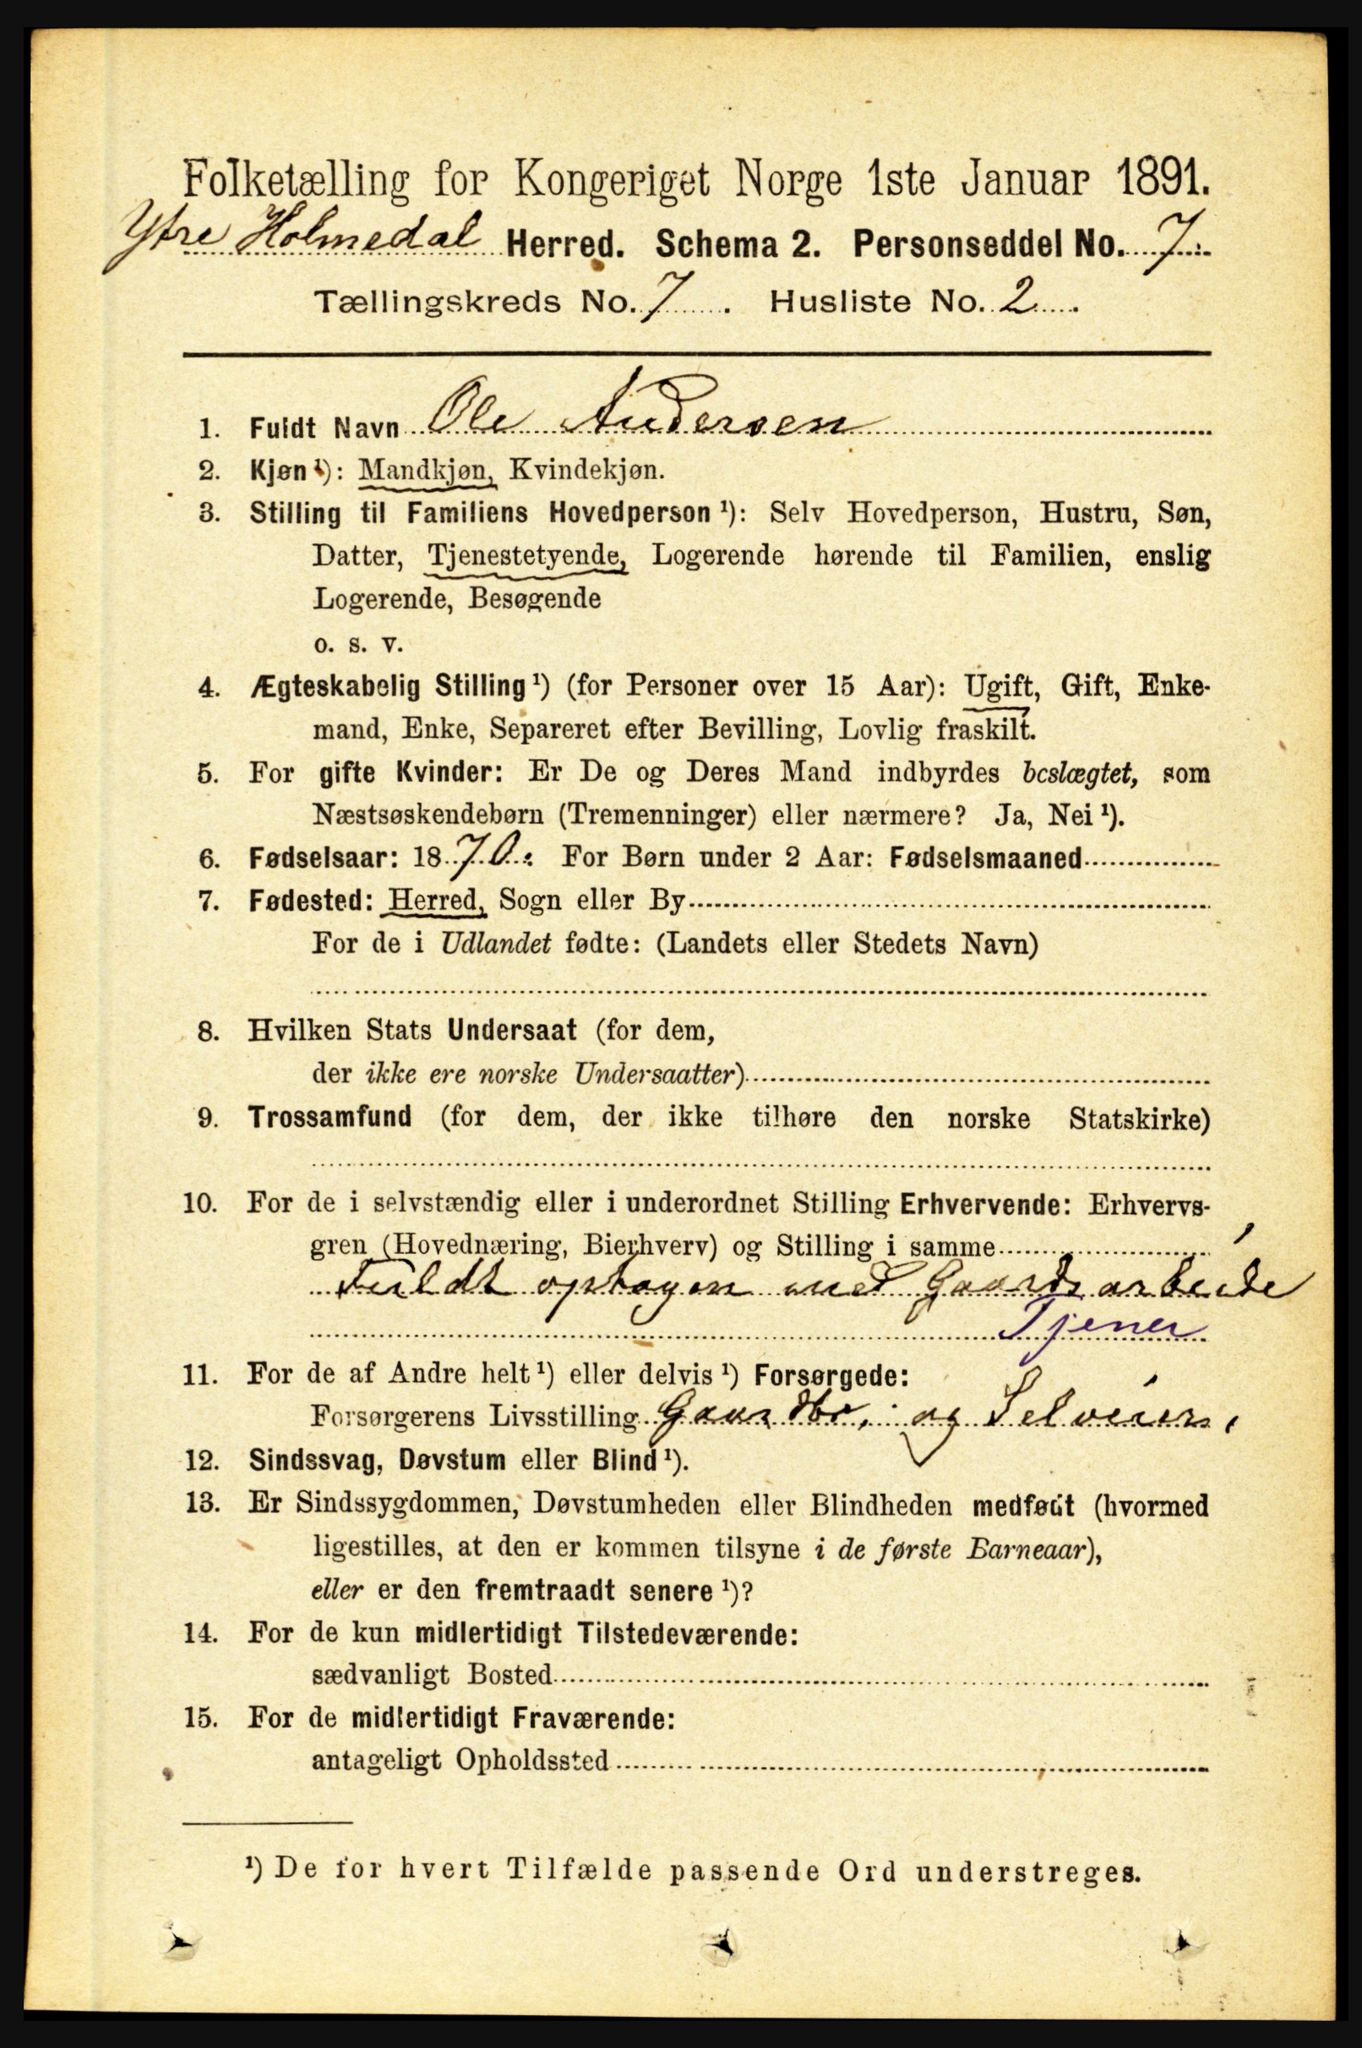 Folketælling for Kongeriget Norge 1ste Januar 1891.
Ytre Holmedal Herred. Schema 2. Personseddel No. 7.
Tællingskreds No. 7. Husliste No. 2.
1. Fuldt Navn Ole Andersen
2. Kjøn ¹): Mandkjøn, Kvindekjøn.
3. Stilling til Familiens Hovedperson ¹): Selv Hovedperson, Hustru, Søn,
Datter, Tjenestetyende, Logerende hørende til Familien, enslig
Logerende, Besøgende
o. s. v.
4. Ægteskabelig Stilling ¹) (for Personer over 15 Aar): Ugift, Gift, Enke-
mand, Enke, Separeret efter Bevilling, Lovlig fraskilt.
5. For gifte Kvinder: Er De og Deres Mand indbyrdes beslægtet, som
Næstsøskendebørn (Tremenninger) eller nærmere? Ja, Nei ¹).
6. Fødselsaar: 1870. For Børn under 2 Aar: Fødselsmaaned
7. Fødested: Herred, Sogn eller By
For de i Udlandet fødte: (Landets eller Stedets Navn)
8. Hvilken Stats Undersaat (for dem,
der ikke ere norske Undersaatter)
9. Trossamfund (for dem, der ikke tilhøre den norske Statskirke)
10. For de i selvstændig eller i underordnet Stilling Erhvervende: Erhvervs-
gren (Hovednæring, Bierhverv) og Stilling i samme
Fuldt optagen med Gaardsarbeide
Tjener
11. For de af Andre helt ¹) eller delvis ¹) Forsørgede:
Forsørgerens Livsstilling Gaardbr. og Selveier,
12. Sindssvag, Døvstum eller Blind ¹).
13. Er Sindssygdommen, Døvstumheden eller Blindheden medfødt (hvormed
ligestilles, at den er kommen tilsyne i de første Barneaar),
eller er den fremtraadt senere ¹)?
14. For de kun midlertidigt Tilstedeværende:
sædvanligt Bosted
15. For de midlertidigt Fraværende:
antageligt Opholdssted
¹) De for hvert Tilfælde passende Ord understreges.